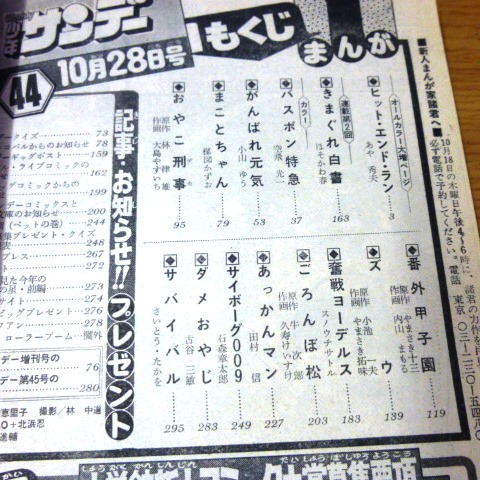 少年サンデー
44
10月28日号
もくじ
まんが
■新人まんが家諸君へ■
10月18日の木曜日午後4～6時に、諸君の力作を
必ず電話で予約してください。電話 東京
オールカラー大増ページ
◆ヒット・エンド・ラン
あや秀夫
3
連載第2回
◆きまぐれ白書
ほそかわ春
163
カラー
◆パスポン特急
空飛光一
37
◆がんばれ元気
小山ゆう
53
◆まことちゃん
楳図かずお
79
◆おやこ刑事
デカ
原作 林律雄
作画 大島やすいち
95
◆番外甲子園
原作 やまさき十三
作画 内山まもる
119
◆ズウ
原作 小池一夫
作画 やまさき拓味
139
◆奮戦ヨーデルス
スノウチサトル
183
◆ころんぼ松
原作 牛次郎
作画 久寿けいすけ
203
◆あっかんマン
田村信
227
◆サイボーグ009
石森章太郎
249
◆ダメおやじ
古谷三敏
283
◆サバイバル
さいとう・たかを
295
記事・お知らせ!!プレゼント
クイズ 73
からのお知らせ 78
ギャグポスト 159
ル・ライブコミックの
162
グコミックからの
199
デーコミックスと
庫のお知らせ 200
(ペットの巻) 244
集プレゼント・クイズ
248
プレス 267
ト 272
見た今年の
・前編 273
サイト 274
ビッグプレゼント 276
ファン 278
ローラーブーム 欄外
デー増刊号の
76
デー第45号の
280
恵里子 撮影/林
＋北浜忍
進輔